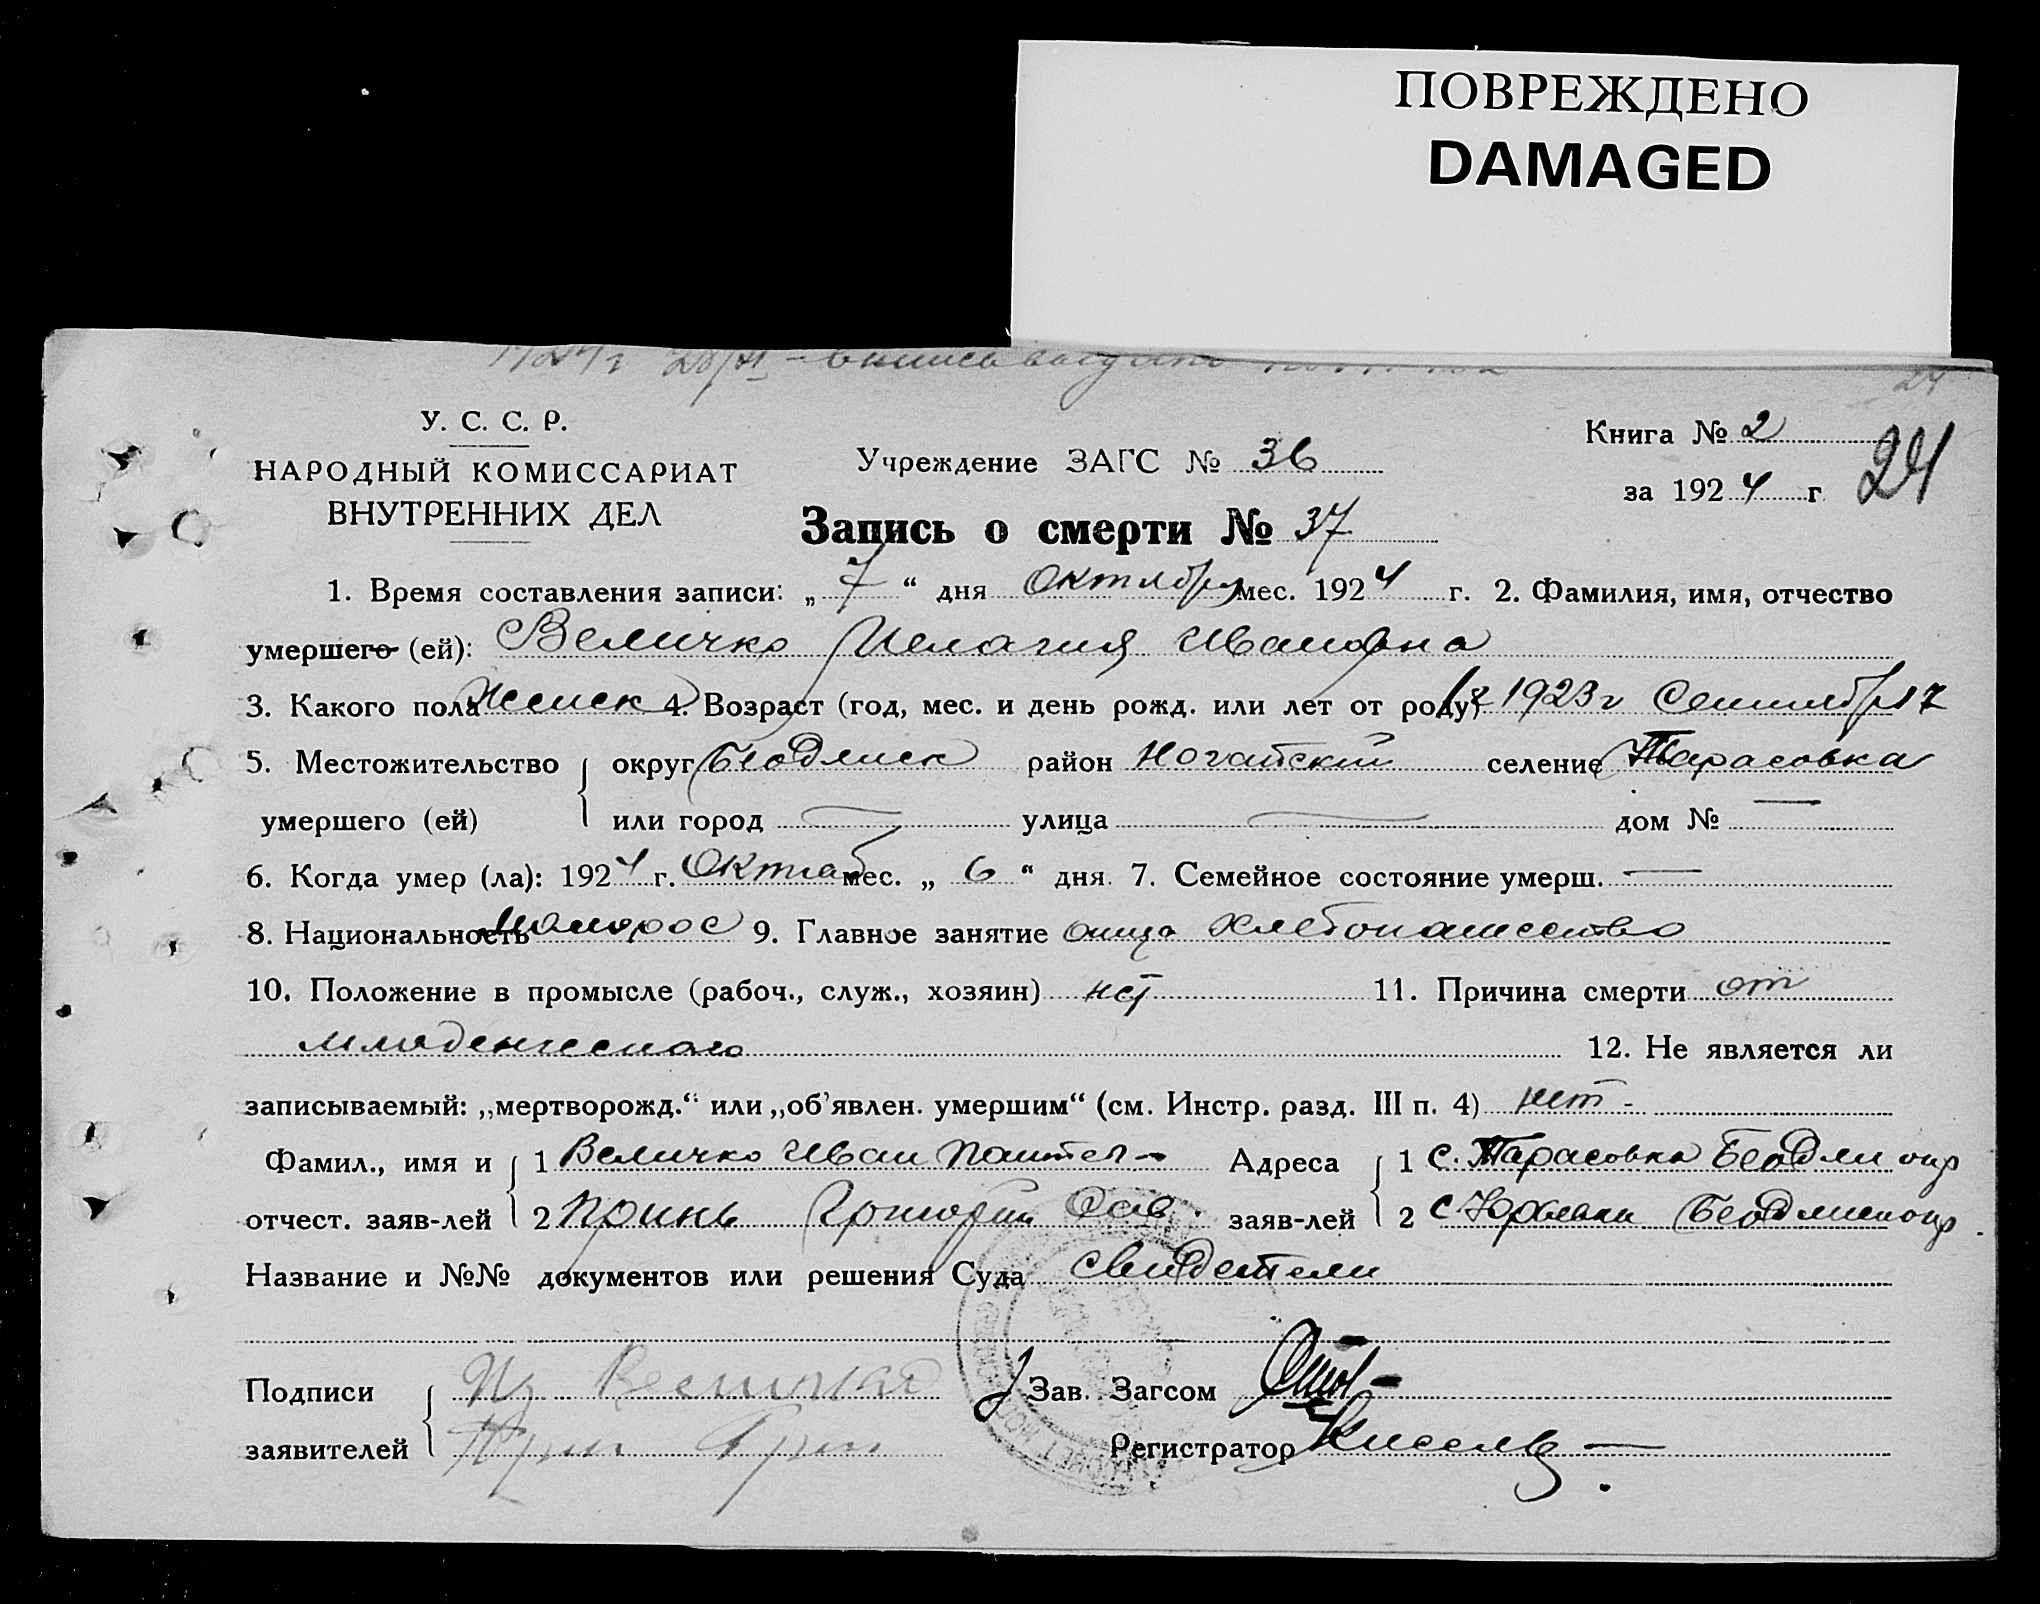 ПОВРЕЖДЕНО
DAMAGED
24
У. С. С. Р.
НАРОДНЫЙ КОМИССАРИАТ
ВНУТРЕННИХ ДЕЛ
Учреждение ЗАГС № 36
Книга № 2
за 1924 г
24
Запись о смерти № 37
1. Время составления записи: „ 7 “ дня Октября мес. 1924 г. 2. Фамилия, имя, отчество
умершего (ей): Величко Пелагия Ивановна
3. Какого пола Женск 4. Возраст (год, мес. и день рожд. или лет от роду) 1923 г Сентября 17
5. Местожительство округ Бердянск район Ногайский селение Тарасовка
умершего (ей) или город — улица — дом № —
6. Когда умер (ла): 1924 г. Октяб мес. „ 6 “ дня. 7. Семейное состояние умерш. —
8. Национальность Малорос 9. Главное занятие отца Хлебопашество
10. Положение в промысле (рабоч., служ., хозяин) нет 11. Причина смерти от
младенческого 12. Не является ли
записываемый: „мертворожд.“ или „об'явлен. умершим“ (см. Инстр. разд. III п. 4) нет -
Фамил., имя и 1 Величко Иван Пантел- Адреса 1 с. Тарасовка Бердян окр
отчест. заяв-лей 2 Григорий Сав. заяв-лей 2 с Юрьевки Бердянск окр.
Название и №№ документов или решения Суда свидетели
Подписи Величко Зав. Загсом
заявителей Гри Регистратор Киселев